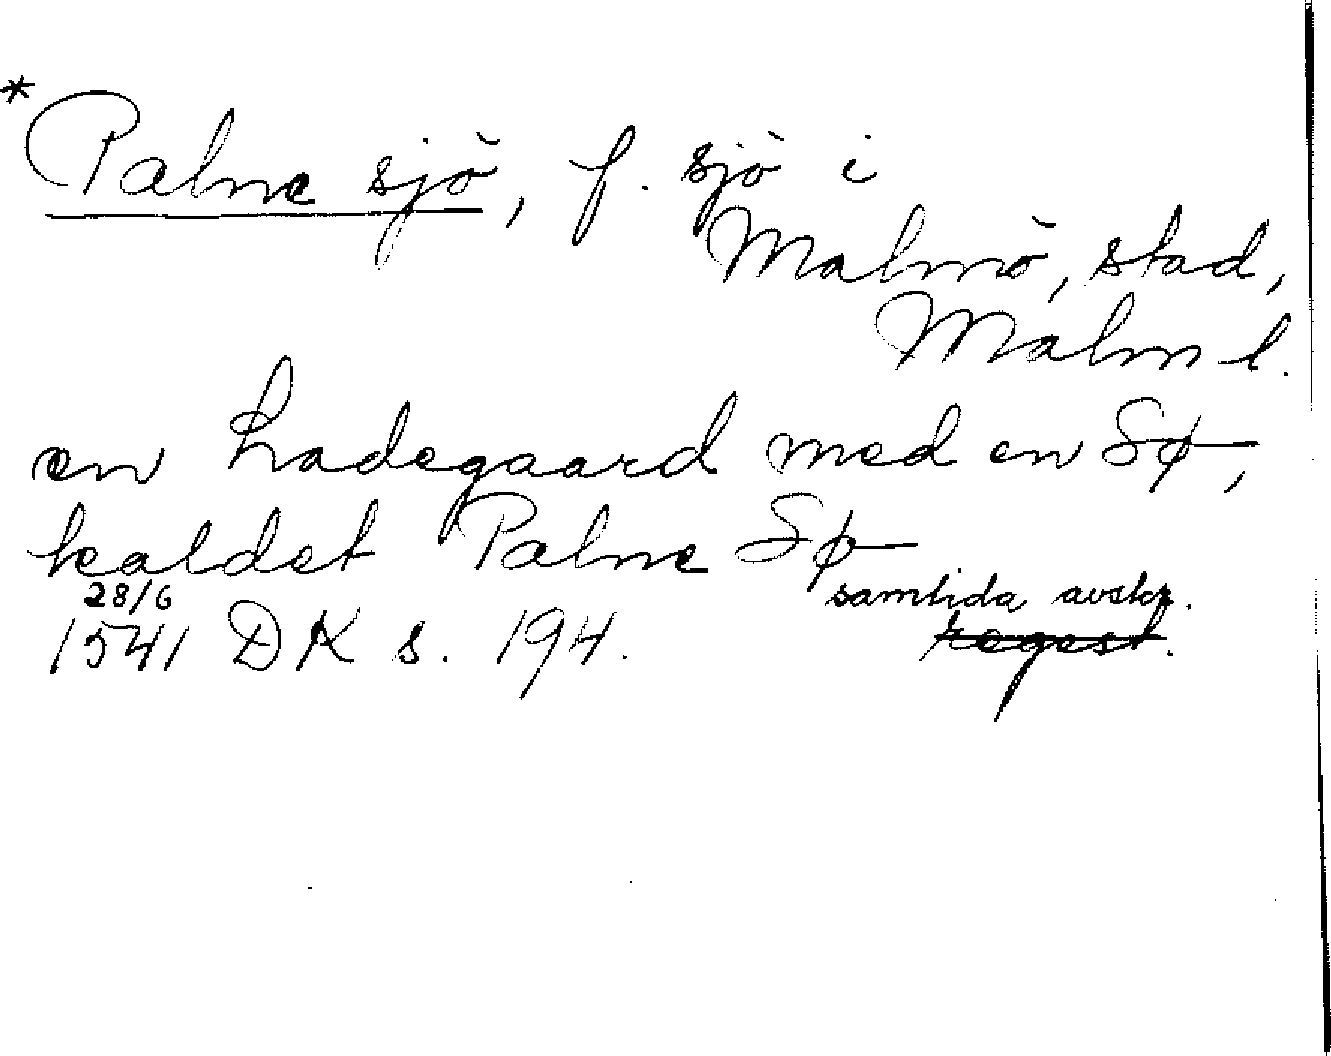 * Palne sjö, f. sjö i
Malmö, stad,
Malm l.
en Ladegaard med en Sø,
kaldet Palne Sø
28/6
samtida avskr.
1541 DK s. 194. regest.